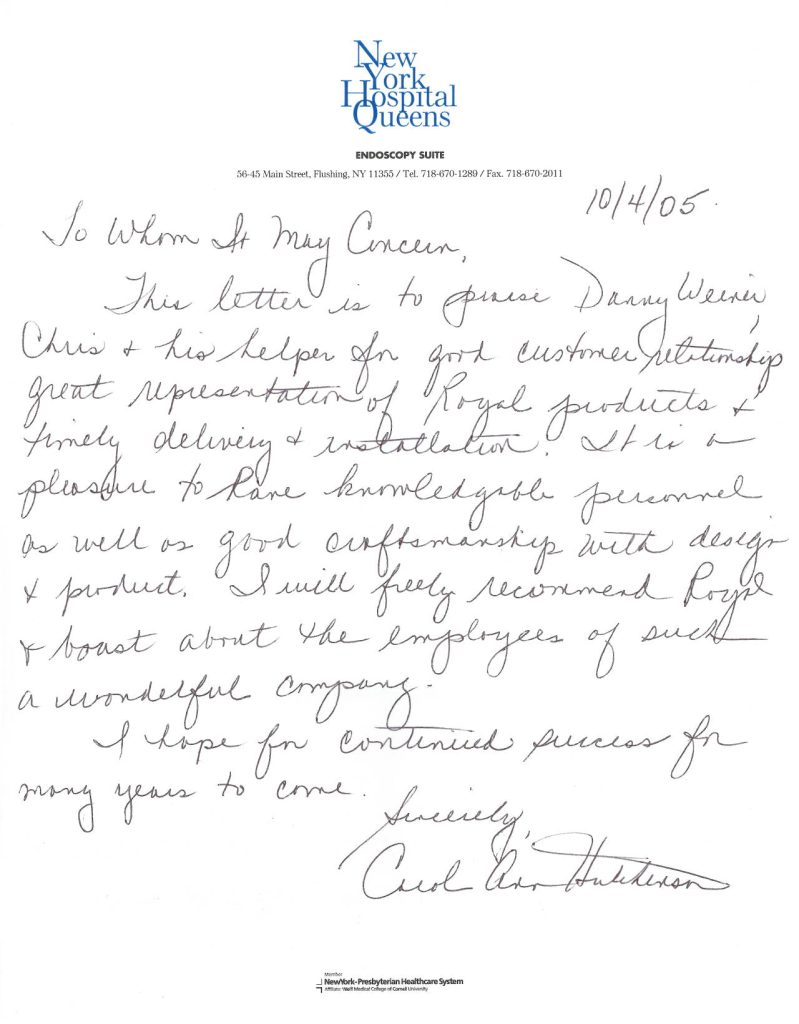 New
York
Hospital
Queens
ENDOSCOPY SUITE
56-45 Main Street, Flushing, NY 11355 / Tel. 718-670-1289 / Fax. 718-670-2011
10/4/05.
To Whom It May Concern,
This letter is to praise Danny Weiner,
Chris & his helper for good customer relationship
great representation of Royal products &
timely delivery & installation. It is a
pleasure to have knowledgable personnel
as well as good craftsmanship with design
& product. I will freely recommend Royal
& boast about the employees of such
a wonderful company.
I hope for continued success for
many years to come.
Sincerely,
Carol Ann Hutcherson
Member
NewYork-Presbyterian Healthcare System
Affiliate: Weill Medical College of Cornell University